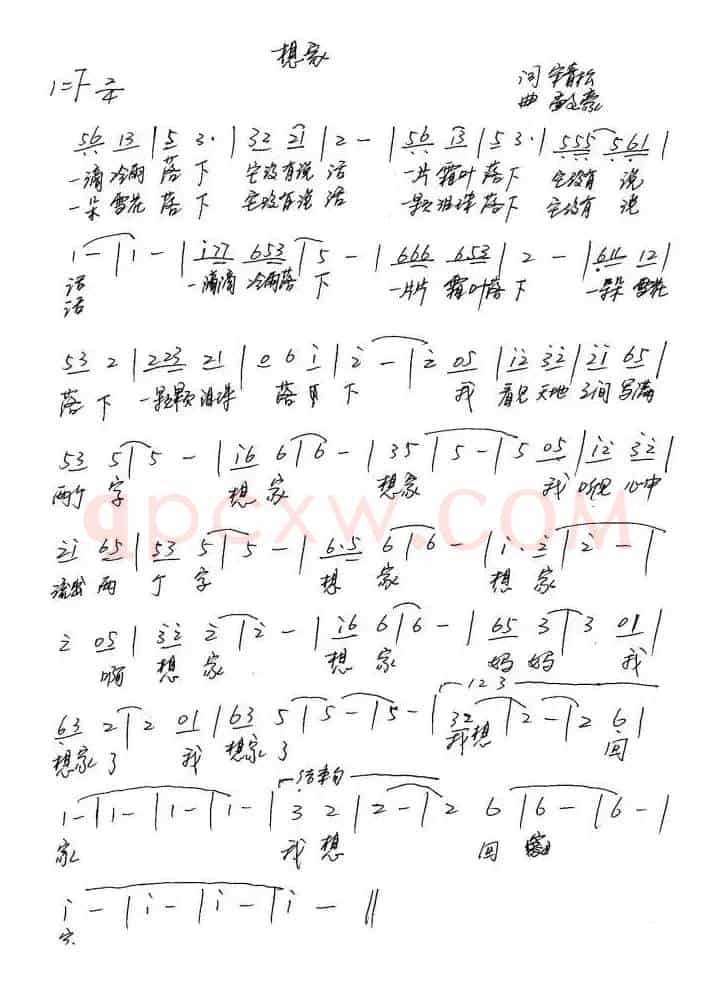 想家
1=F 2/4
词 宋青松
曲 孟文豪
56 13 | 5 3· | 32 21 | 2 - | 56 i3 | 5 3· | 555 561 |
一滴 冷雨 落 下 它没有说 话 一片 霜叶 落 下 它没有 说
一朵 雪花 落 下 它没有说 话 一颗 泪珠 落 下 它没有 说
1 - | 1 - | i77 653 | 5 - | 666 653 | 2 - | 611 12 |
话 一滴滴 冷雨落 下 一片片 霜叶落 下 一朵朵 雪花
话
53 2 | 223 21 | 0 6 i | 2 - | 2 05 | i2 32 | 2i 65 |
落 下 一颗颗 泪珠 落 下 我 看见 天地 之间 写满
53 5 | 5 - | i6 6 | 6 - | 35 | 5 - | 5 05 | i2 32 |
两个 字 想 家 想家 我 听见 心中
2i 65 | 53 5 | 5 - | 6·5 6 | 6 - | i·2 | 2 - |
流出 两 个 字 想 家 想 家
2 05 | 32 2 | 2 - | i6 6 | 6 - | 65 3 | 3 01 |
啊 想 家 想 家 妈 妈 我
123
63 2 | 2 01 | 63 5 | 5 - | 5 - | 32 | 2 - | 2 6 |
想家 了 我 想家 了 我想 回
结束句
1 - | 1 - | 1 - | 1 - | 3 2 | 2 - | 2 6 | 6 - | 6 - |
家 我 想 回
i - | i - | i - | i - ||
家
qpcxw.COM